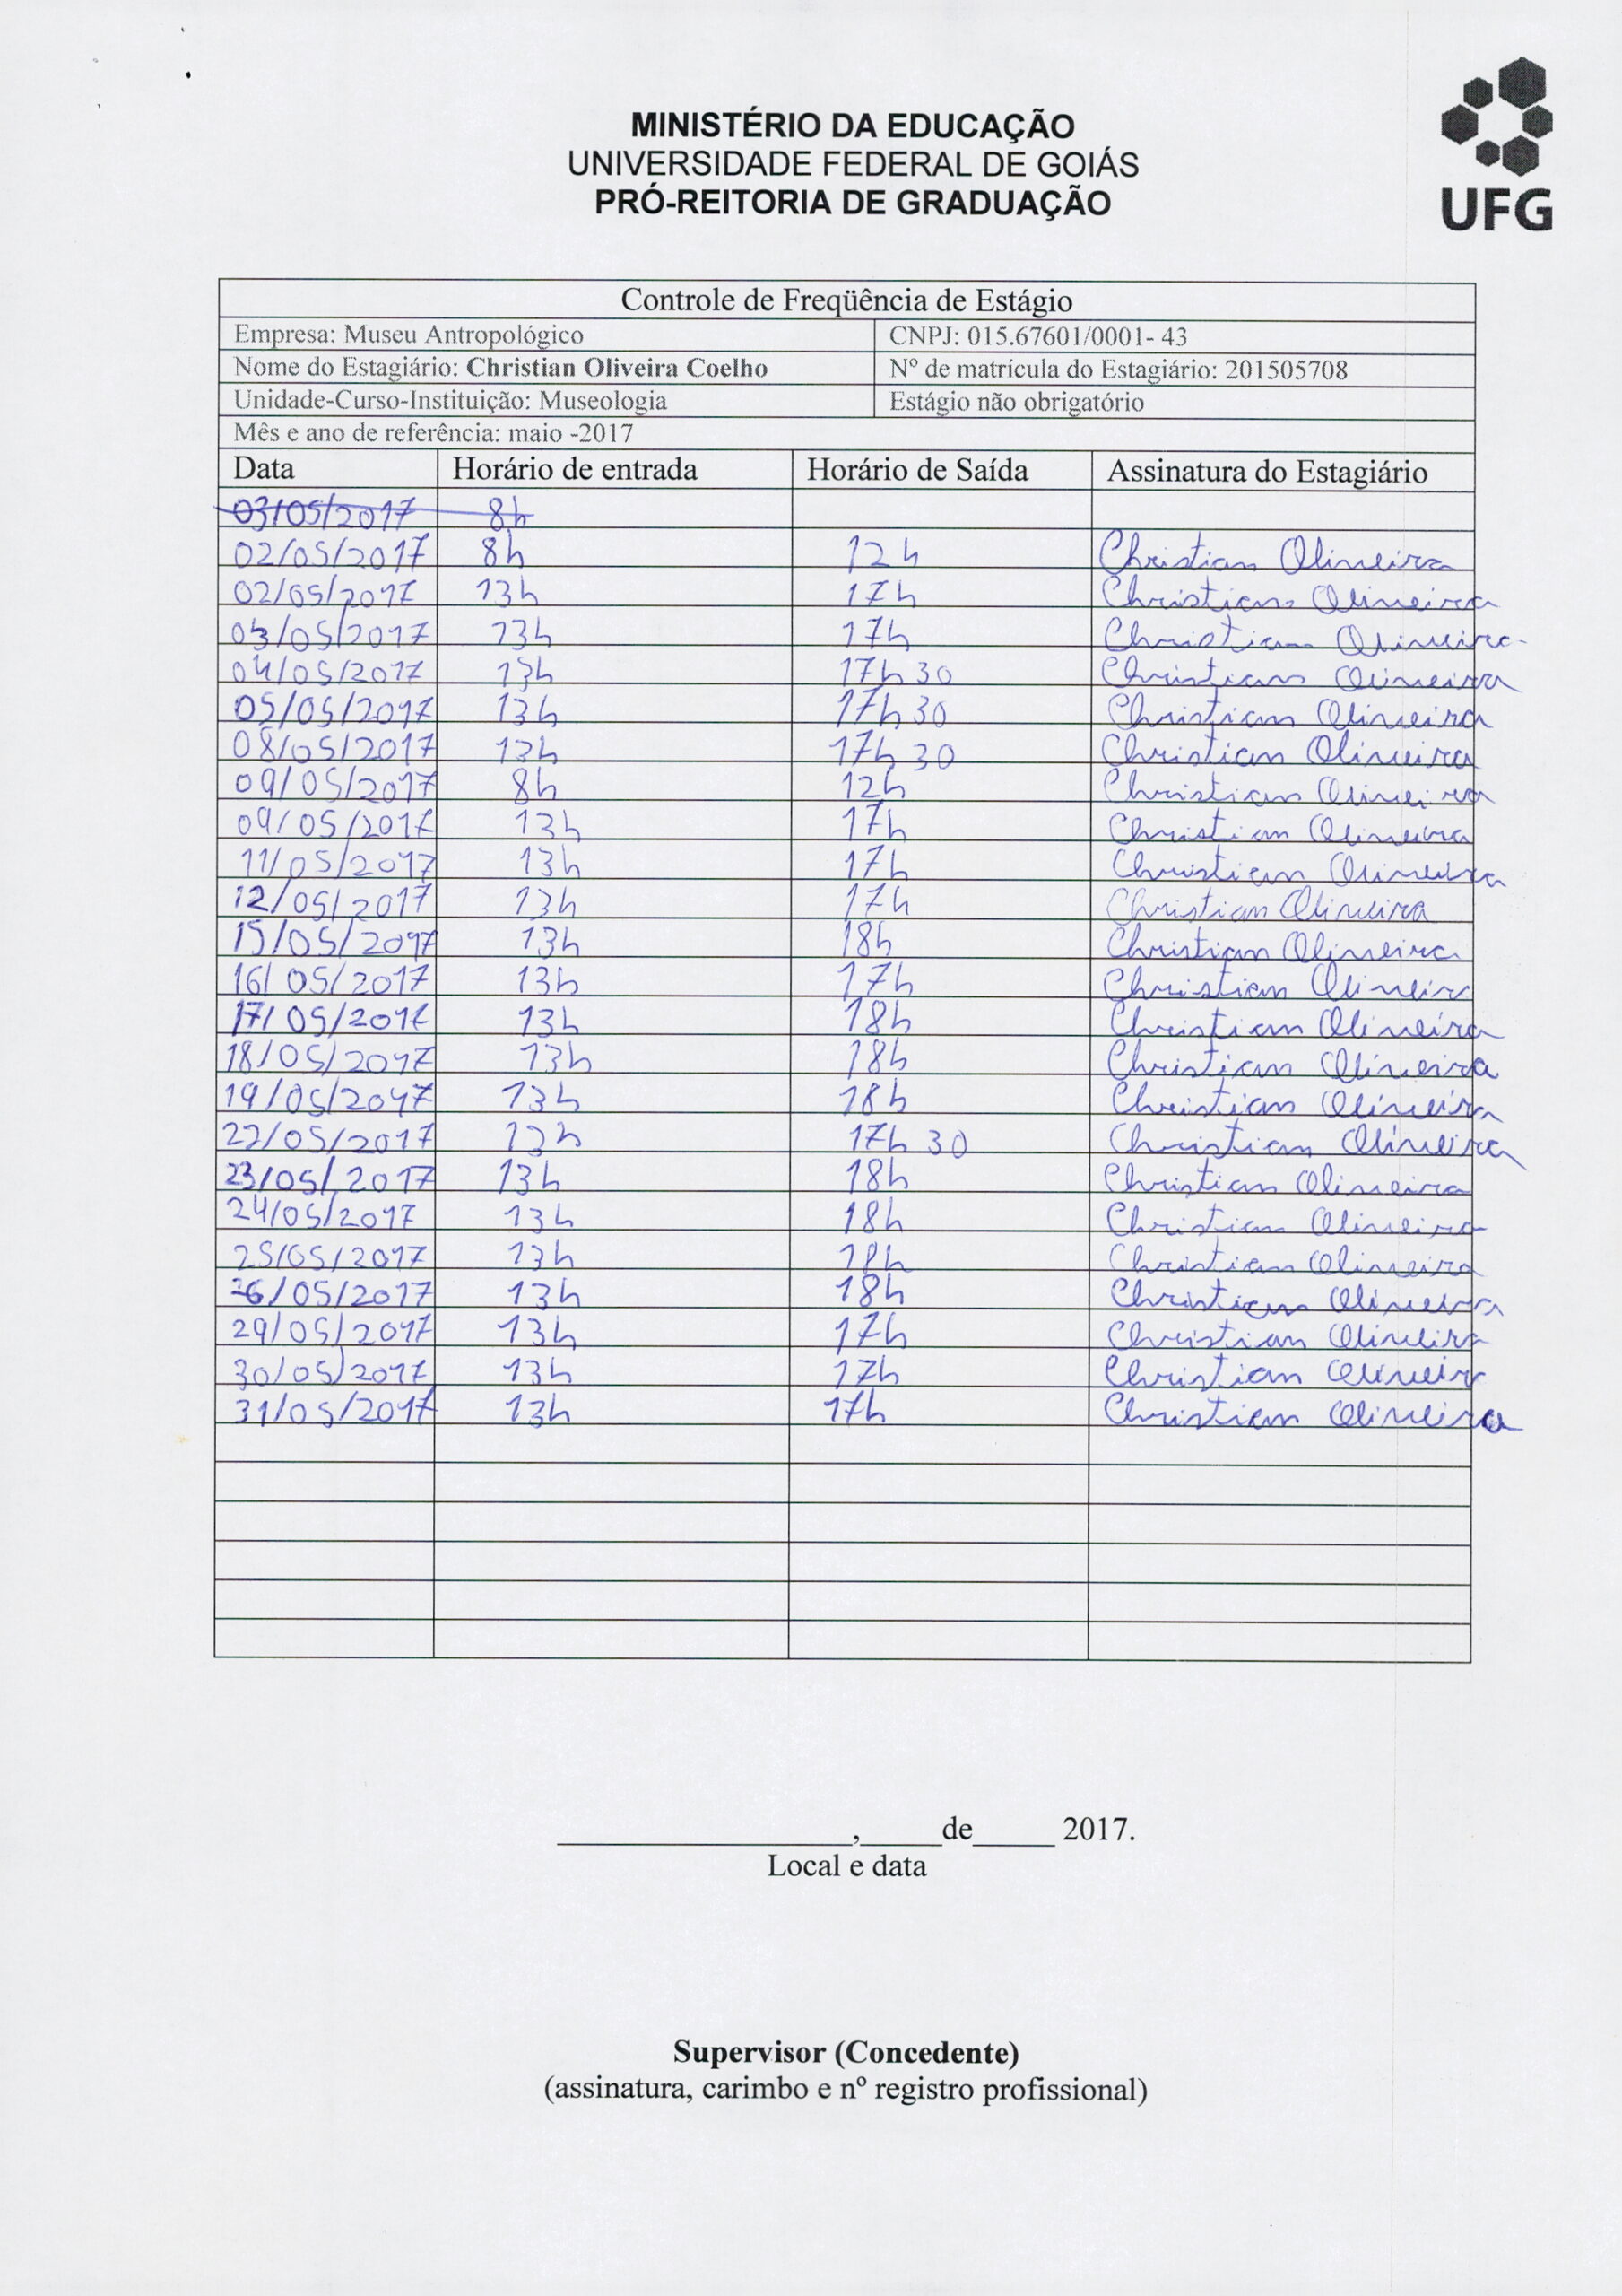 MINISTÉRIO DA EDUCAÇÃO
UNIVERSIDADE FEDERAL DE GOIÁS
PRÓ-REITORIA DE GRADUAÇÃO
UFG
Controle de Freqüência de Estágio
Empresa: Museu Antropológico CNPJ: 015.67601/0001- 43
Nome do Estagiário: Christian Oliveira Coelho Nº de matrícula do Estagiário: 201505708
Unidade-Curso-Instituição: Museologia Estágio não obrigatório
Mês e ano de referência: maio -2017
Data Horário de entrada Horário de Saída Assinatura do Estagiário
03/05/2017 8h
02/05/2017 8h 12h Christian Oliveira
02/05/2017 13h 17h Christian Oliveira
03/05/2017 13h 17h Christian Oliveira
04/05/2017 13h 17h30 Christian Oliveira
05/05/2017 13h 17h30 Christian Oliveira
08/05/2017 13h 17h30 Christian Oliveira
09/05/2017 8h 12h Christian Oliveira
09/05/2017 13h 17h Christian Oliveira
11/05/2017 13h 17h Christian Oliveira
12/05/2017 13h 17h Christian Oliveira
15/05/2017 13h 18h Christian Oliveira
16/05/2017 13h 17h Christian Oliveira
17/05/2017 13h 18h Christian Oliveira
18/05/2017 13h 18h Christian Oliveira
19/05/2017 13h 18h Christian Oliveira
22/05/2017 13h 17h30 Christian Oliveira
23/05/2017 13h 18h Christian Oliveira
24/05/2017 13h 18h Christian Oliveira
25/05/2017 13h 18h Christian Oliveira
26/05/2017 13h 18h Christian Oliveira
29/05/2017 13h 17h Christian Oliveira
30/05/2017 13h 17h Christian Oliveira
31/05/2017 13h 17h Christian Oliveira
__________________,_____de_____ 2017.
Local e data
Supervisor (Concedente)
(assinatura, carimbo e nº registro profissional)